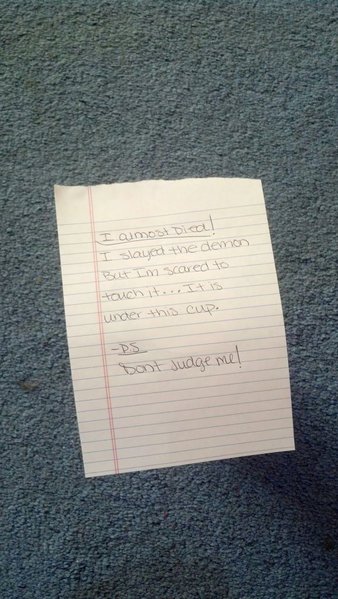 I almost Died!
I slayed the demon
But Im scared to
touch it... It is
under this cup.
-PS
Dont judge me!